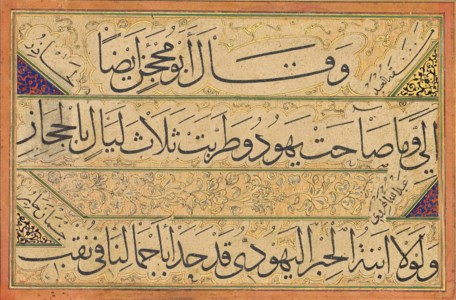 وقال أبو محجن أيضاً
إلي وما صاحت يهود وطربت ثلاث ليال بالحجاز
ولولا ابنة الحبر اليهودي قد حدا باجمالنا في نقب